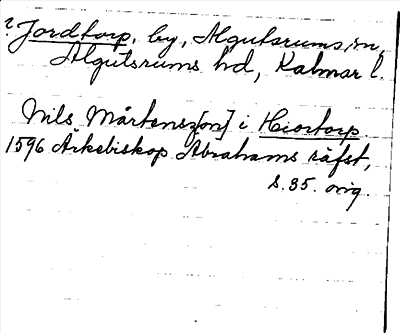 ? Jordtorp, by, Algutsrums sn,
Algutsrums hd, Kalmar l.
Nils Mårtensz[on] i Hiortorp.
1596 Ärkebiskop Abrahams räfst,
s. 35. orig.